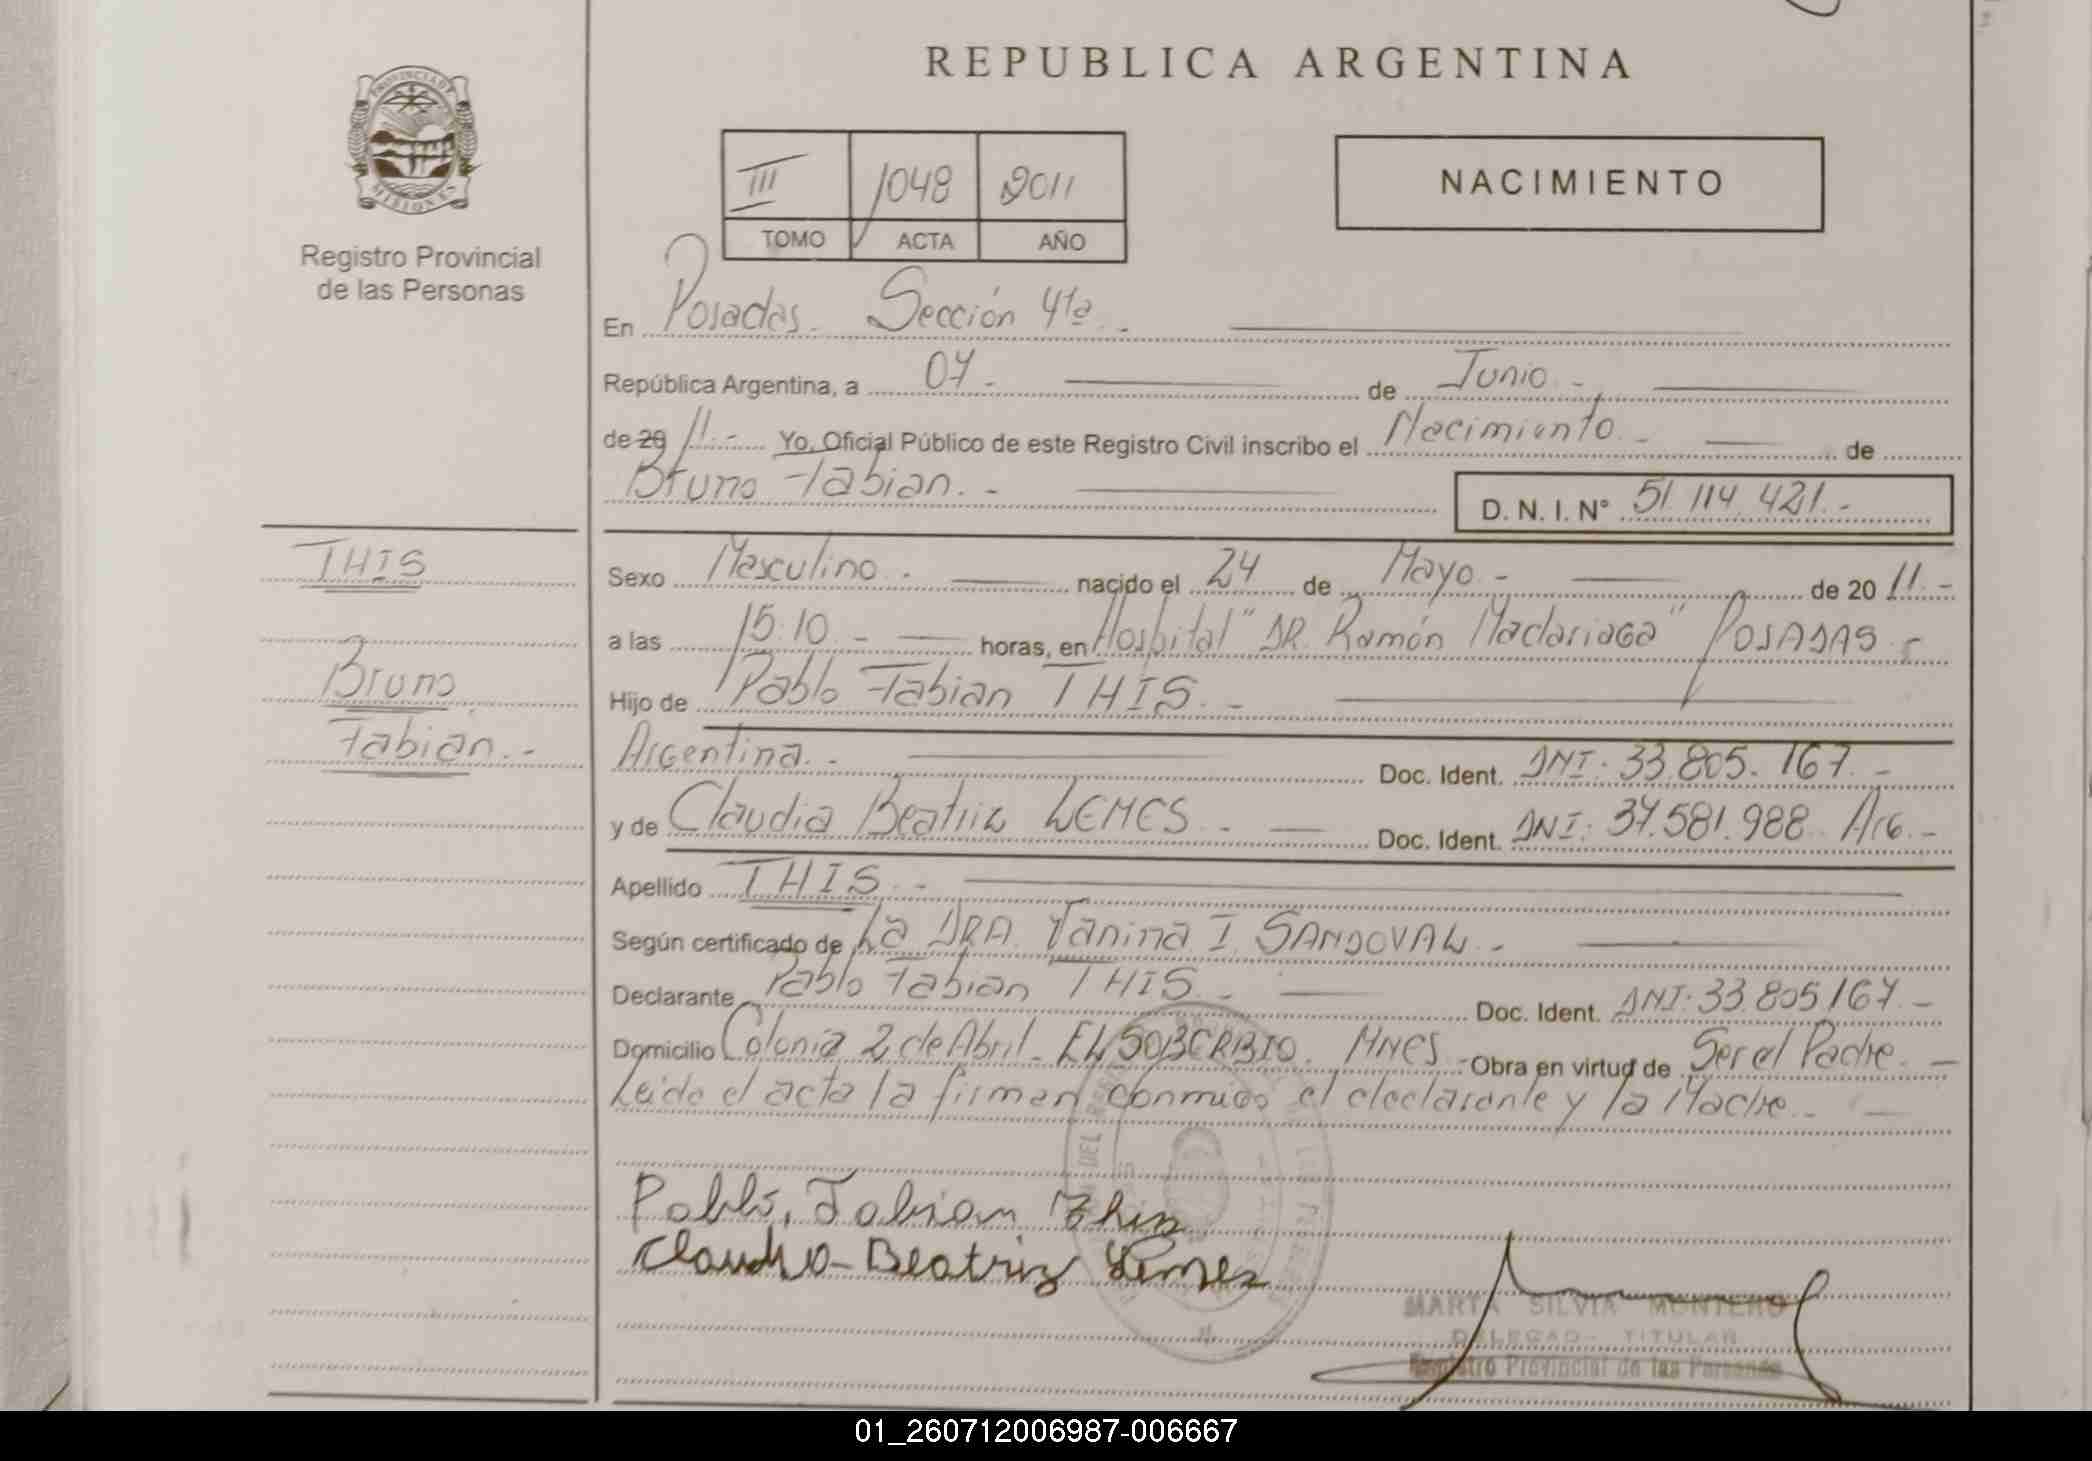 REPUBLICA ARGENTINA
PROVINCIA DE MISIONES
Registro Provincial
de las Personas
III 1048 2011
TOMO ACTA AÑO
NACIMIENTO
En Posadas. Sección 4ta. -
República Argentina, a 07. - de Junio. -
de 20 11. - Yo, Oficial Público de este Registro Civil inscribo el Nacimiento. - de
Bruno Fabian. - D. N. I. N° 51.114.421. -
THIS
Bruno
Fabian. -
Sexo Masculino. - nacido el 24 de Mayo. - de 20 11. -
a las 15.10. - horas, en Hospital "DR. Ramón Madariaga" POSADAS. -
Hijo de Pablo Fabian THIS. -
Argentina. - Doc. Ident. DNI: 33.805.167. -
y de Claudia Beatriz LEMES. - Doc. Ident. DNI: 37.581.988. Arg. -
Apellido THIS. -
Según certificado de La DRA. Yanina I. SANDOVAL. -
Declarante Pablo Fabian THIS. - Doc. Ident. DNI: 33.805167. -
Domicilio Colonia 2 de Abril. EL SOBERBIO. MNES. - Obra en virtud de Ser el Padre. -
Leida el acta la firman conmigo el declarante y la Madre. -
Pablo, Fabian This
Claudia-Beatriz Lemes
MARTA SILVIA MONTERO
DELEGADA TITULAR
Registro Provincial de las Personas
01_260712006987-006667